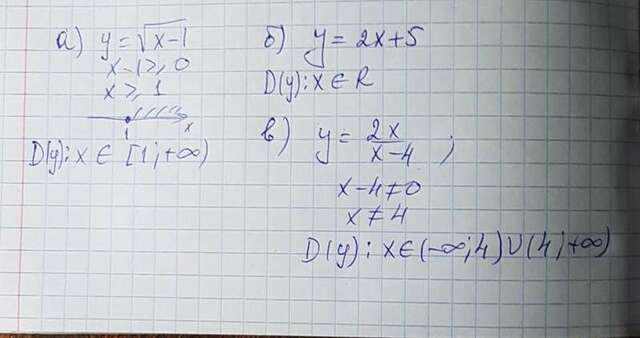 а) y = √x-1
x-1 ⩾ 0
x ⩾ 1
1 x
D(y): x ∈ [1; +∞)
б) y = 2x+5
D(y): x ∈ R
в) y = 2x/x-4 ;
x-4 ≠ 0
x ≠ 4
D(y): x ∈ (-∞; 4) ∪ (4; +∞)